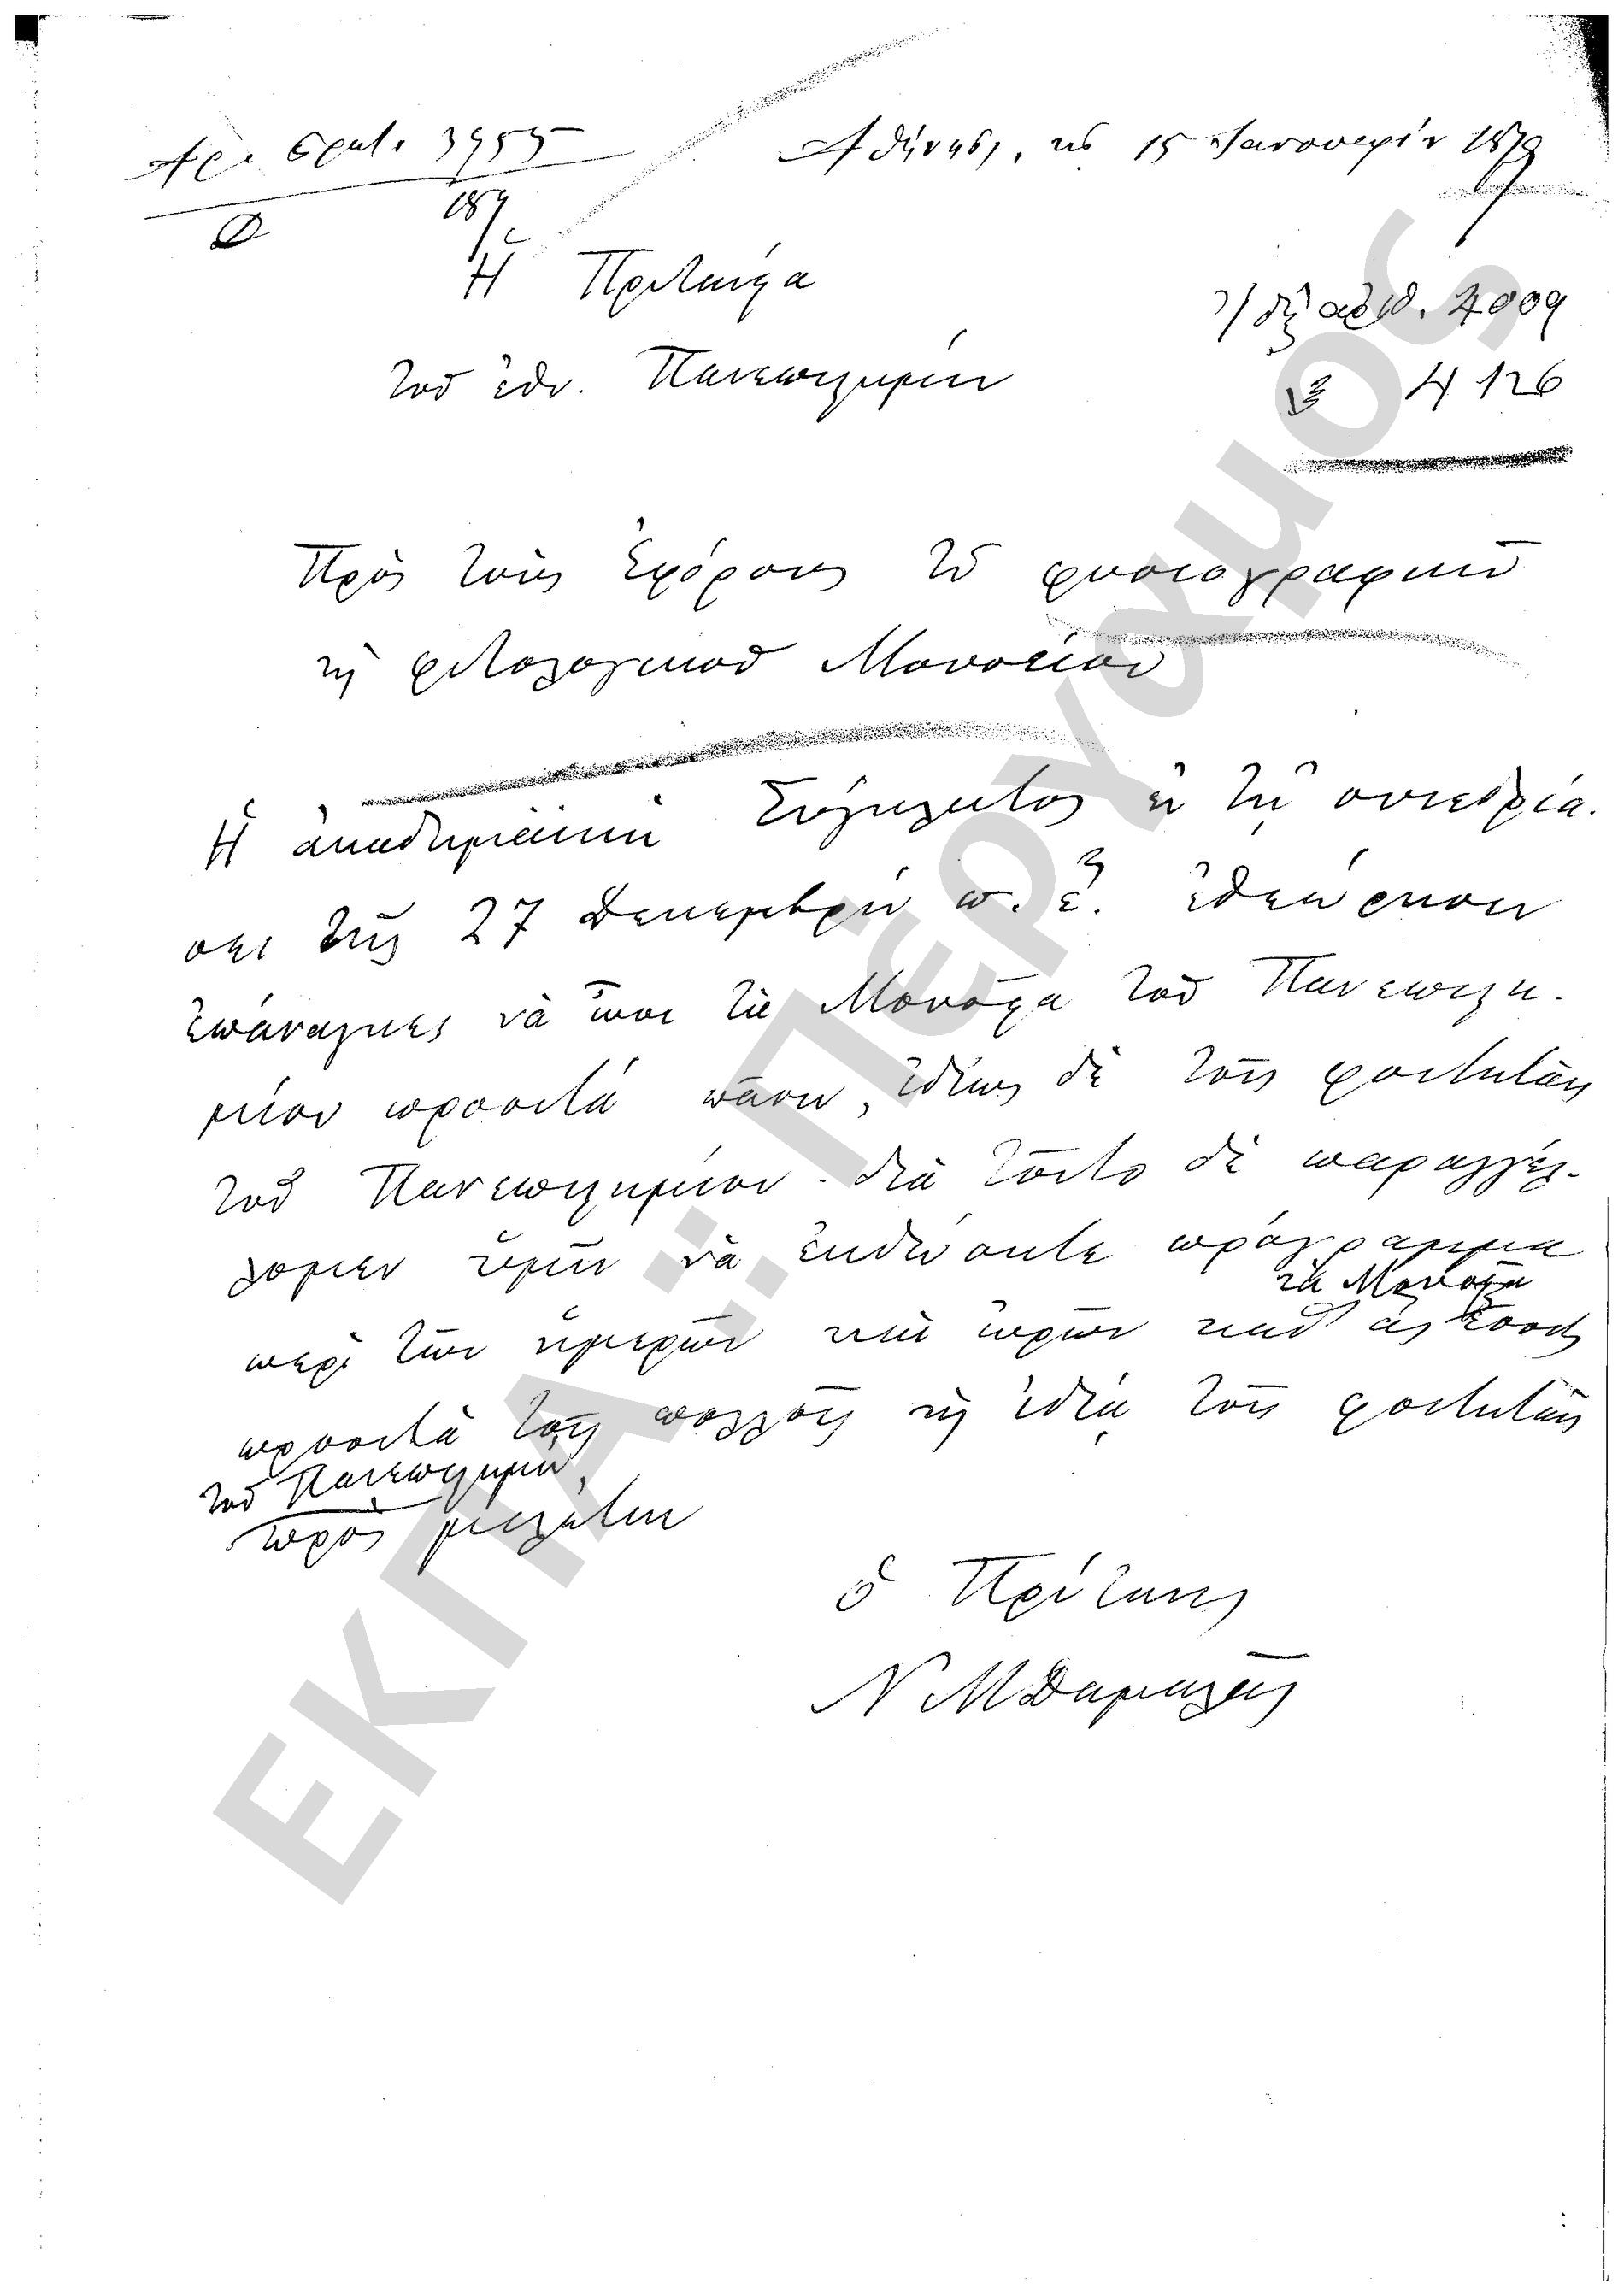 Ἀρ. Πρωτ. 3955
Ἀθήνησι, τῇ 15 Ἰανουαρίου 1879
Ἡ Πρυτανεία
τοῦ ἐθν. Πανεπιστημίου
ἀριθ. 4009
4126
Πρὸς τοὺς Ἐφόρους τοῦ φυσιογραφικοῦ
καὶ φυτολογικοῦ Μουσείου
Ἡ ἀκαδημαϊκὴ Σύγκλητος ἐν τῇ συνεδριά-
σει τῆς 27 Δεκεμβρίου π. ἔ. ἐθεώρησεν
ἐπάναγκες νὰ ὦσι τὰ Μουσεῖα τοῦ Πανεπιστη-
μίου προσιτὰ πᾶσιν, ἰδίως δὲ τοῖς φοιτηταῖς
τοῦ Πανεπιστημίου. διὰ τοῦτο δὲ παραγγέλ-
λομεν ὑμῖν νὰ ἐκδώσητε πρόγραμμα
τὰ Μουσεῖα
περὶ τῶν ἡμερῶν καὶ ὡρῶν καθ' ἃς ἔσονται
προσιτὰ τοῖς πολλοῖς καὶ ἰδίᾳ τοῖς φοιτηταῖς
τοῦ Πανεπιστημίου
πρὸς μελέτην
ὁ Πρύτανις
Ν Μ Δαμαλᾶς
ΕΚΠΑ: Πέργαμος